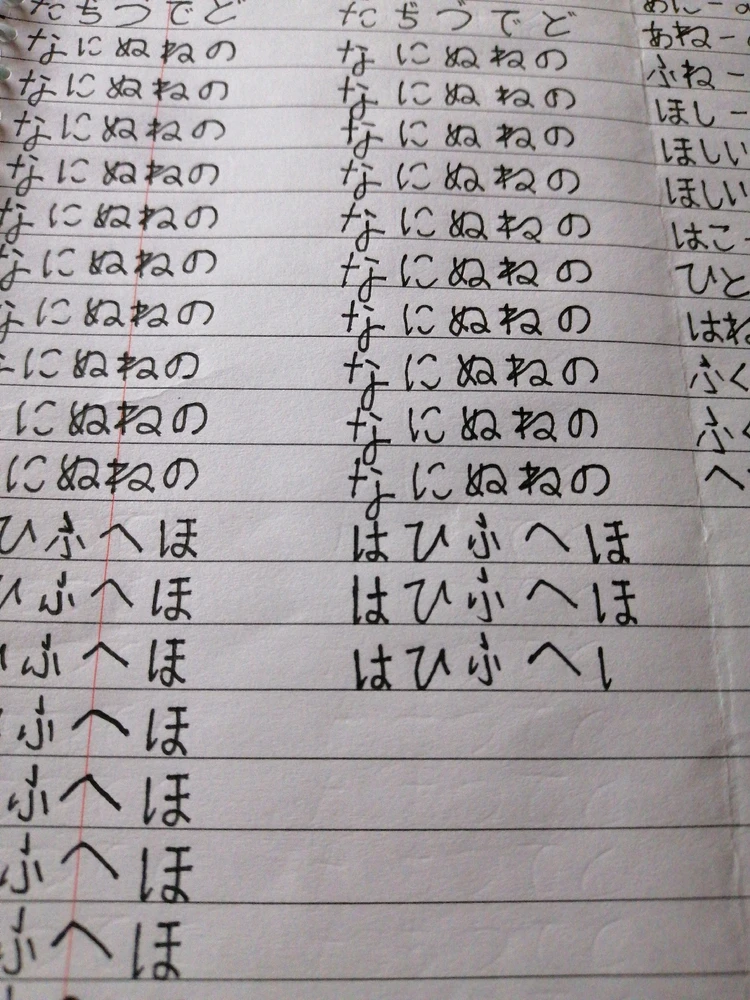 たぢづでど
なにぬねの
なにぬねの
なにぬねの
なにぬねの
なにぬねの
なにぬねの
なにぬねの
にぬねの
にぬねの
にぬねの
ひふへほ
ひふへほ
ふへほ
ふへほ
ふへほ
ふへほ
ふへほ
たぢづでど
なにぬねの
なにぬねの
なにぬねの
なにぬねの
なにぬねの
なにぬねの
なにぬねの
なにぬねの
なにぬねの
なにぬねの
はひふへほ
はひふへほ
はひふへ
あに-
あね-
ふね-
ほし-
ほしい
ほしい
はこ-
ひと
はね
ふく
ふく
へ